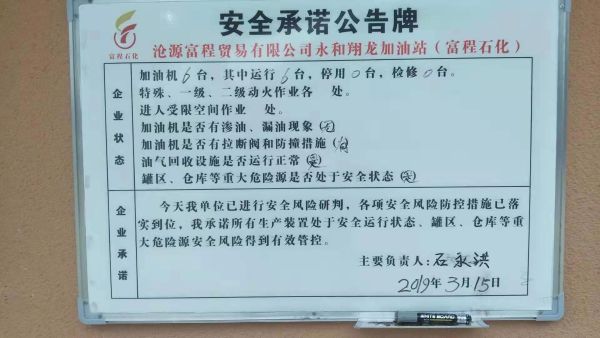 安全承诺公告牌
富程石化
沧源富程贸易有限公司永和翔龙加油站（富程石化）
企业状态
加油机6台，其中运行6台，停用0台，检修0台。
特殊、一级、二级动火作业各 处。
进入受限空间作业 处。
加油机是否有渗油、漏油现象（否）
加油机是否有拉断阀和防撞措施（有）
油气回收设施是否运行正常（是）
罐区、仓库等重大危险源是否处于安全状态（是）
企业承诺
今天我单位已进行安全风险研判，各项安全风险防控措施已落
实到位，我承诺所有生产装置处于安全运行状态、罐区、仓库等重
大危险源安全风险得到有效管控。
主要负责人：石永洪
2019年3月15日
WHITE BOARD